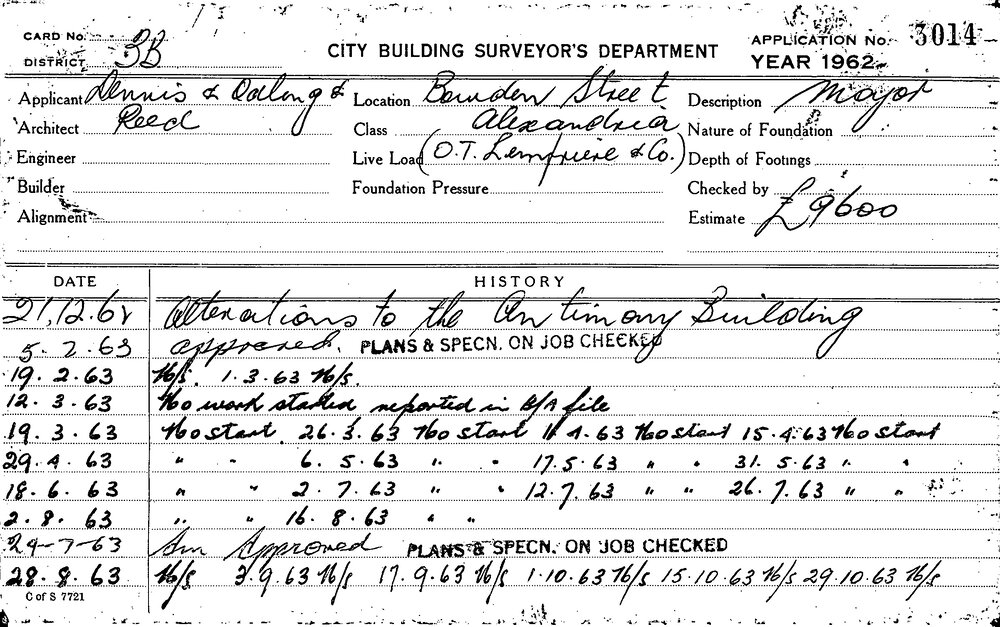 CARD No. CITY BUILDING SURVEYOR'S DEPARTMENT APPLICATION No. 3014
DISTRICT 3B YEAR 1962
Applicant Dennis & Dalong & Location Bowden Street Description Major
Architect Reed Class Alexandria Nature of Foundation
Engineer Live Load (O.T. Lempriere & Co.) Depth of Footings
Builder Foundation Pressure Checked by
Alignment Estimate £9600
DATE HISTORY
21.12.62 Alterations to the Antimony Building
5.2.63 approved. PLANS & SPECN. ON JOB CHECKED
19.2.63 N/s. 1.3.63 N/s.
12.3.63 No work started reported in B/A file
19.3.63 No start. 26.3.63 No start 11.4.63 No start 15.4.63 No start
29.4.63 " " 6.5.63 " " 17.5.63 " " 31.5.63 " "
18.6.63 " " 2.7.63 " " 12.7.63 " " 26.7.63 " "
2.8.63 " " 16.8.63 " "
24-7-63 Am Approved PLANS & SPECN. ON JOB CHECKED
28.8.63 N/s 3.9.63 N/s 17.9.63 N/s 1.10.63 N/s 15.10.63 N/s 29.10.63 N/s
C of S 7721